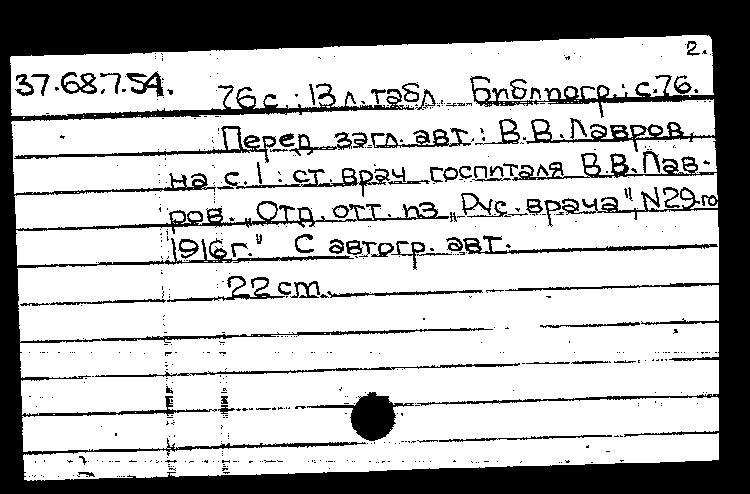 2.
37.68.7.54.
76 с.; 13 л. табл. Библиогр.: с. 76.
Перед загл. авт.: В.В. Лавров,
на с. 1: ст. врач госпиталя В.В. Лав-
ров. „Отд. отт. из „Рус. врача", N29-го
1916 г." С автогр. авт.
22 cm.